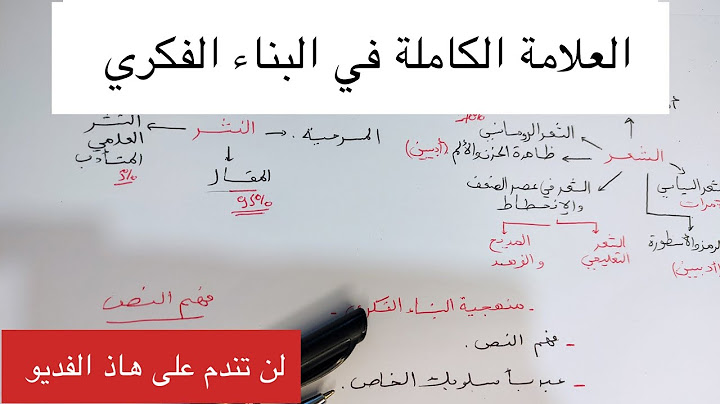 العلامة الكاملة في البناء الفكري
الشعر
الشعر الرومانسي
ظاهرة الحزن والألم (أدبيين)
الشعر في عصر الضعف
والإنحطاط
الشعر
التعليمي
المديح
والزهد
الشعر السياسي
الرمز والأسطورة
(أدبيين)
النثر
المسرحية.
المقال
95%
النثر
العلمي
المتأدب
5%
فهم النص
- منهجية البناء الفكري -
- فهم النص.
- عبر بأسلوبك الخاص.
لن تندم على هاذ الفديو